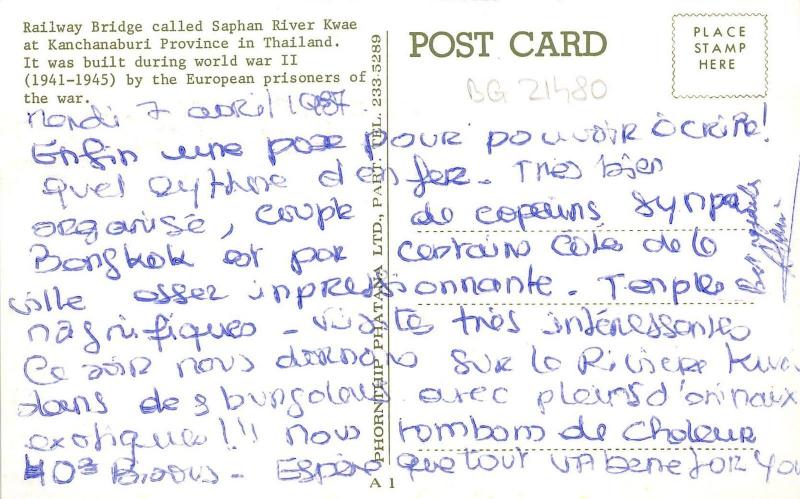 Railway Bridge called Saphan River Kwae
at Kanchanaburi Province in Thailand.
It was built during world war II
(1941-1945) by the European prisoners of
the war.
POST CARD
PLACE
STAMP
HERE
BG 21480
PHORNTHIP PHATANA LTD., PART. TEL. 233-5289
A 1
Mardi 7 avril 1987.
Enfin une pose pour pouvoir écrire!
quel rythme d'enfer. Très bien
organisé, couple de copains sympa
Bangkok est par certains côtés de la
ville assez inpressionnante. Temples
magnifiques - visite très intéressantes
Ce soir nous dormons sur la Rivière Kwai
dans des bungalow avec pleins d'animaux
exotiques!!! nous tombons de chaleur
40° Bisous - Espère que tout va bene for you